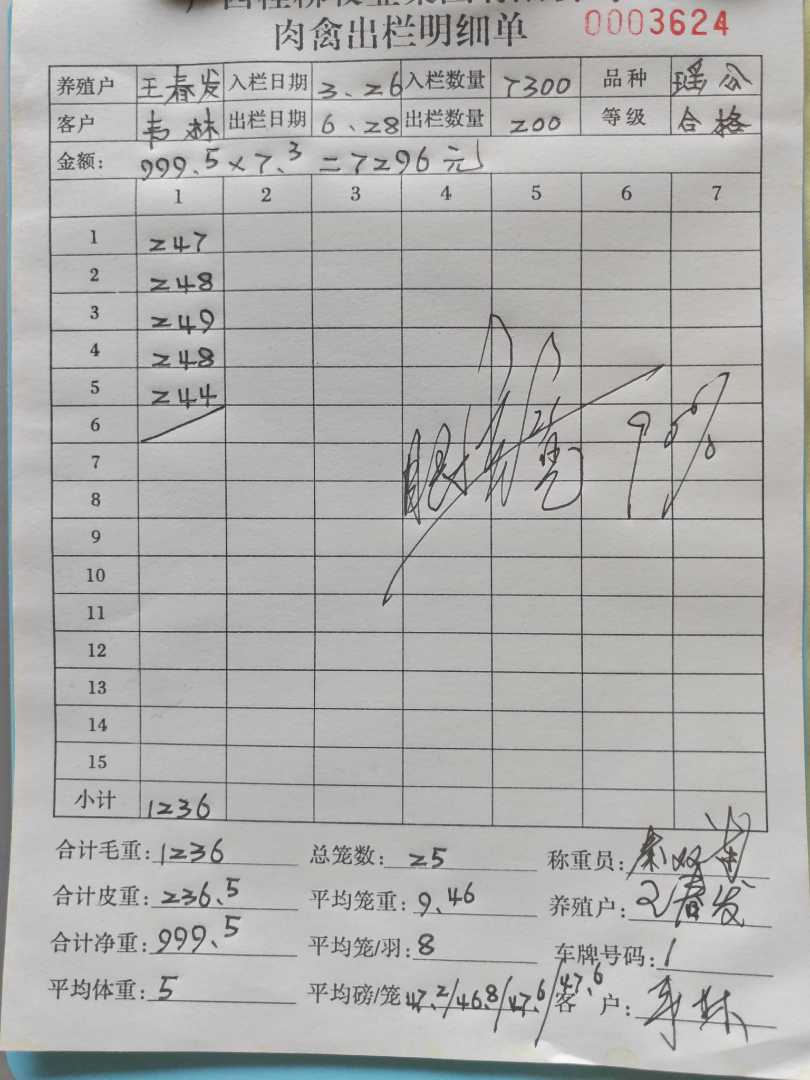 肉禽出栏明细单 0003624
养殖户 王春发 入栏日期 3.26 入栏数量 7300 品种 瑶公
客户 韦林 出栏日期 6.28 出栏数量 200 等级 合格
金额: 999.5×7.3=7296元
1 2 3 4 5 6 7
1 247
2 248
3 249
4 248
5 244
6
7
8
9
10
11
12
13
14
15
小计 1236
合计毛重:1236 总笼数:25 称重员:
合计皮重:236.5 平均笼重:9.46 养殖户:王春发
合计净重:999.5 平均笼/羽:8 车牌号码:1
平均体重:5 平均磅/笼 47.2/46.8/47.6/47.6 客户:韦林